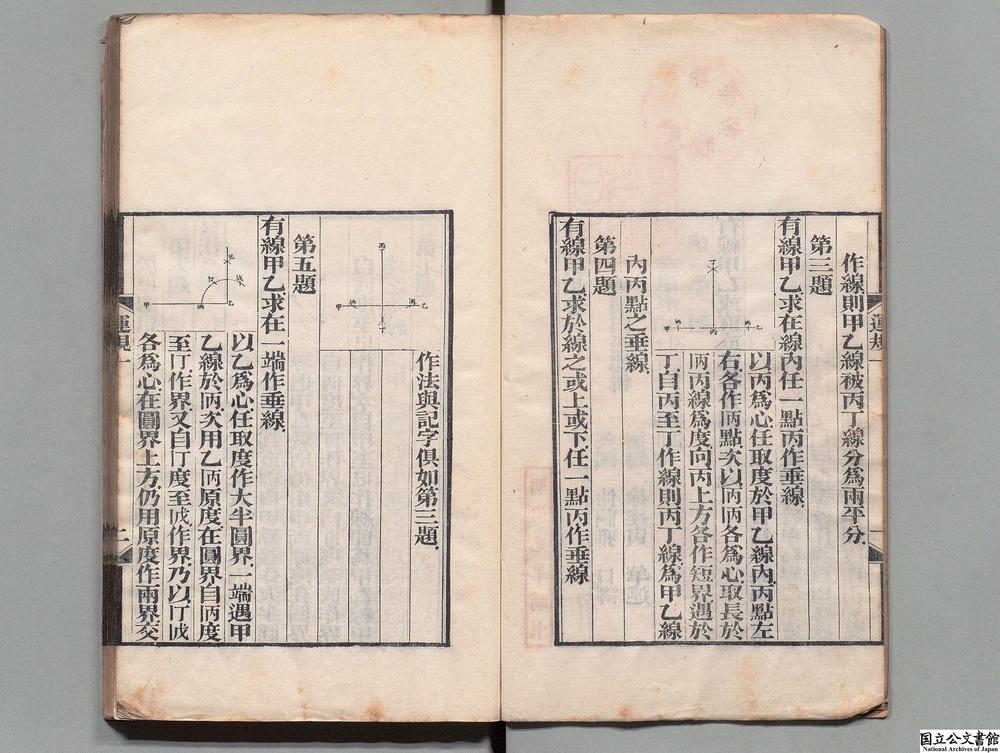 作線則甲乙線被丙丁線分爲兩平分
第三題
有線甲乙求在線內任一點丙作垂線
以丙爲心任取度於甲乙線內丙點左
右各作𠰳點次以𠰳𠰳各爲心取長於
𠰳丙線爲度向丙上方各作短界遇於
丁自丙至丁作線則丙丁線爲甲乙線
內丙點之垂線
第四題
有線甲乙求於線之或上或下任一點丙作垂線
運規一
作法與記字俱如第三題
第五題
有線甲乙求在一端作垂線
以乙爲心任取度作大半圜界一端遇甲
乙線於𠰳次用乙𠰳原度在圜界自𠰳度
至叮作界又自叮度至作界乃以叮
各爲心在圜界上方仍用原度作兩界交
運規一
二
国立公文書館
National Archives of Japan